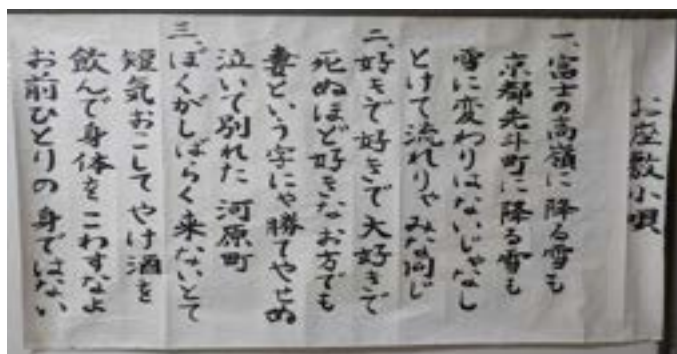 お座敷小唄
一、富士の高嶺に降る雪も
京都先斗町に降る雪も
雪に変わりはないじゃなし
とけて流れりゃみな同じ
二、好きで好きで大好きで
死ぬほど好きなお方でも
妻という字にゃ勝てやせぬ
泣いて別れた河原町
三、ぼくがしばらく来ないとて
短気おこしてやけ酒を
飲んで身体をこわすなよ
お前ひとりの身ではない